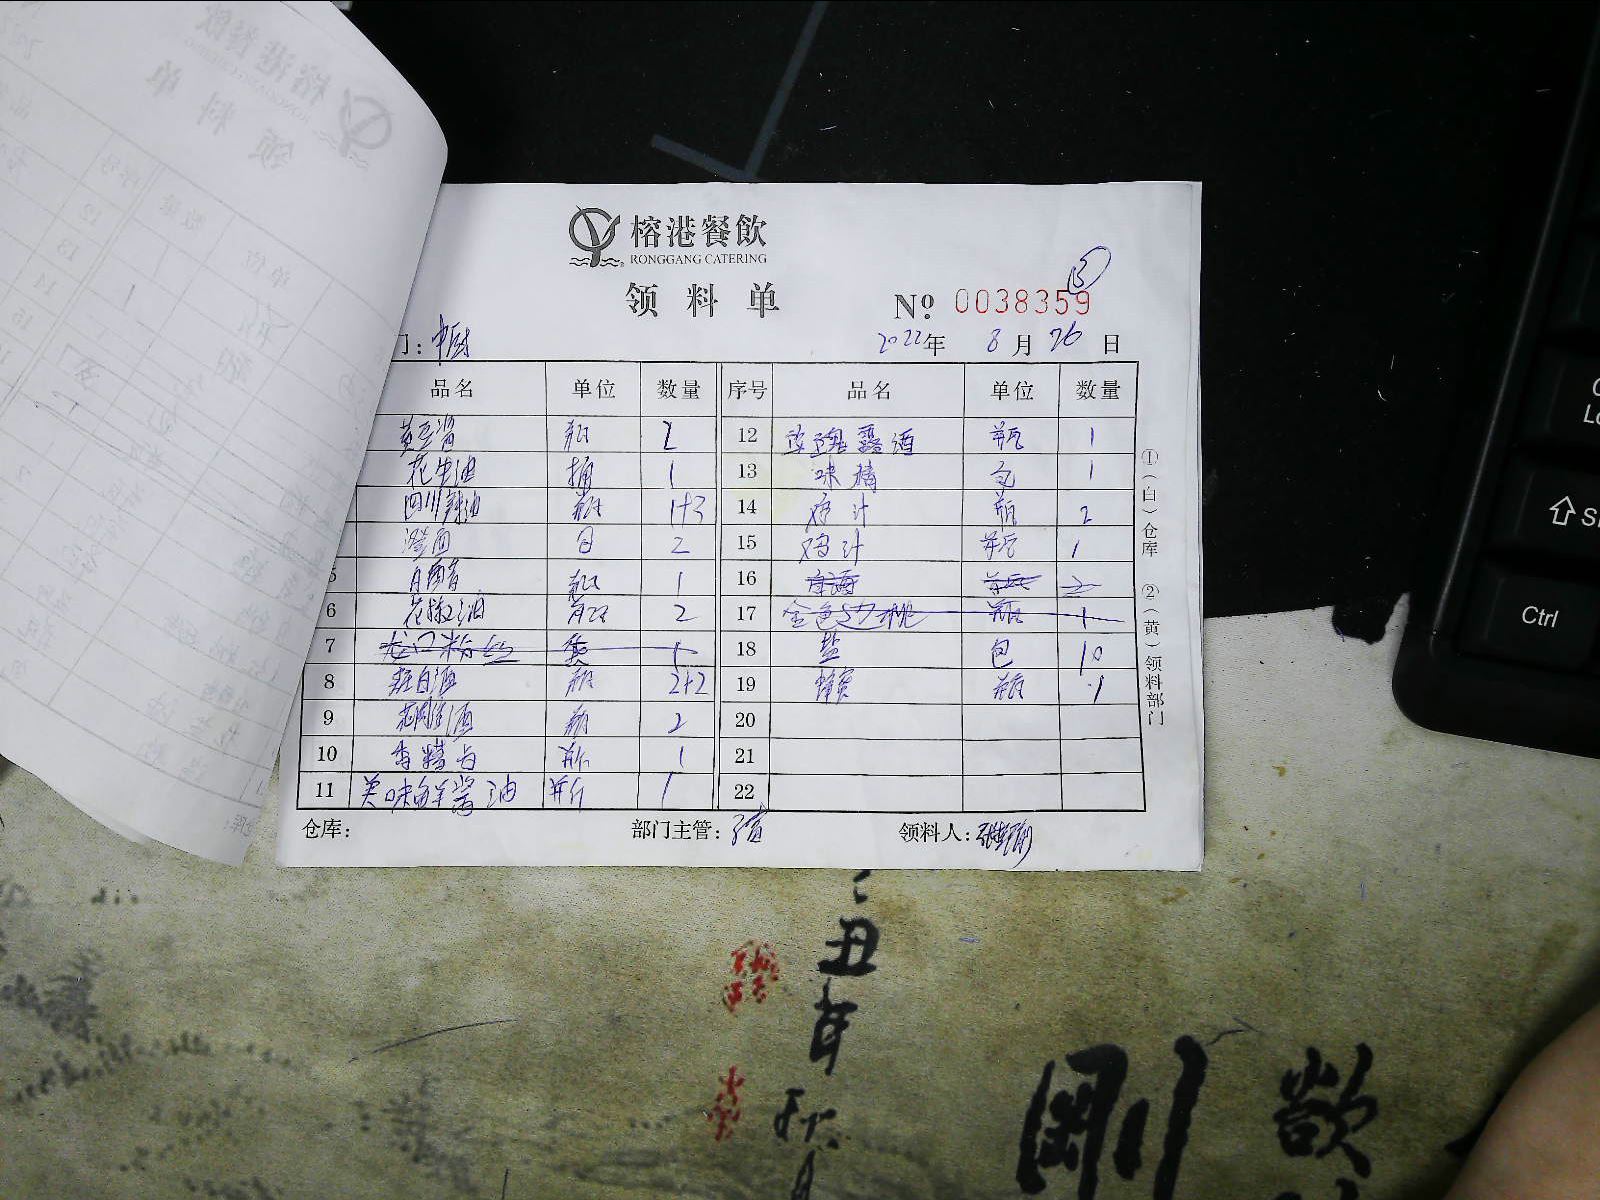 榕港餐飲
RONGGANG CATERING
领料单 Nº 0038359
门: 中厨 2022年 8月 26日
品名 单位 数量 序号 品名 单位 数量
黄豆酱 瓶 2 12 玫瑰露酒 瓶 1
花生油 桶 1 13 味精 包 1
四川辣油 瓶 1+3 14 鸡汁 瓶 2
澄面 包 2 15 鸡汁 瓶 1
瓶 1 16 瓶 2
6 花椒油 瓶 2 17 金色 瓶 1
7 龙口粉丝 袋 1 18 盐 包 10
8 瓶 2+2 19 蜂蜜 瓶 1
9 花雕酒 瓶 2 20
10 香精 瓶 1 21
11 美味鲜酱油 瓶 1 22
仓库: 部门主管: 领料人:
①(白)仓库 ②(黄)领料部门
Ctrl
丑年
剛